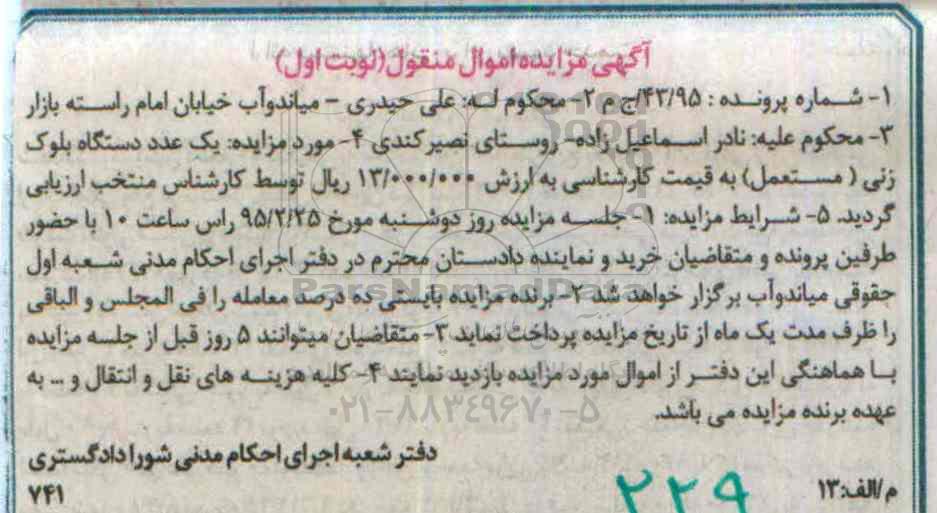 آگهی مزایده اموال منقول (نوبت اول)
۱- شماره پرونده : ۴۳/۹۵/ج م ۲- محکوم له: علی حیدری – میاندوآب خیابان امام راسته بازار
۳- محکوم علیه: نادر اسماعیل زاده- روستای نصیرکندی ۴- مورد مزایده: یک عدد دستگاه بلوک
زنی ( مستعمل) به قیمت کارشناسی به ارزش ۱۳/۰۰۰/۰۰۰ ریال توسط کارشناس منتخب ارزیابی
گردید. ۵- شرایط مزایده: ۱- جلسه مزایده روز دوشنبه مورخ ۹۵/۲/۲۵ راس ساعت ۱۰ با حضور
طرفین پرونده و متقاضیان خرید و نماینده دادستان محترم در دفتر اجرای احکام مدنی شعبه اول
حقوقی میاندوآب برگزار خواهد شد ۲- برنده مزایده بایستی ده درصد معامله را فی المجلس و الباقی
را ظرف مدت یک ماه از تاریخ مزایده پرداخت نماید ۳- متقاضیان میتوانند ۵ روز قبل از جلسه مزایده
با هماهنگی این دفتر از اموال مورد مزایده بازدید نمایند ۴- کلیه هزینه های نقل و انتقال و ... به
عهده برنده مزایده می باشد.
دفتر شعبه اجرای احکام مدنی شورا دادگستری
م/الف:۱۳ ۷۴۱
۲۲۹
ParsNamadData
۰۲۱-۸۸۳۴۹۶۷۰-۵